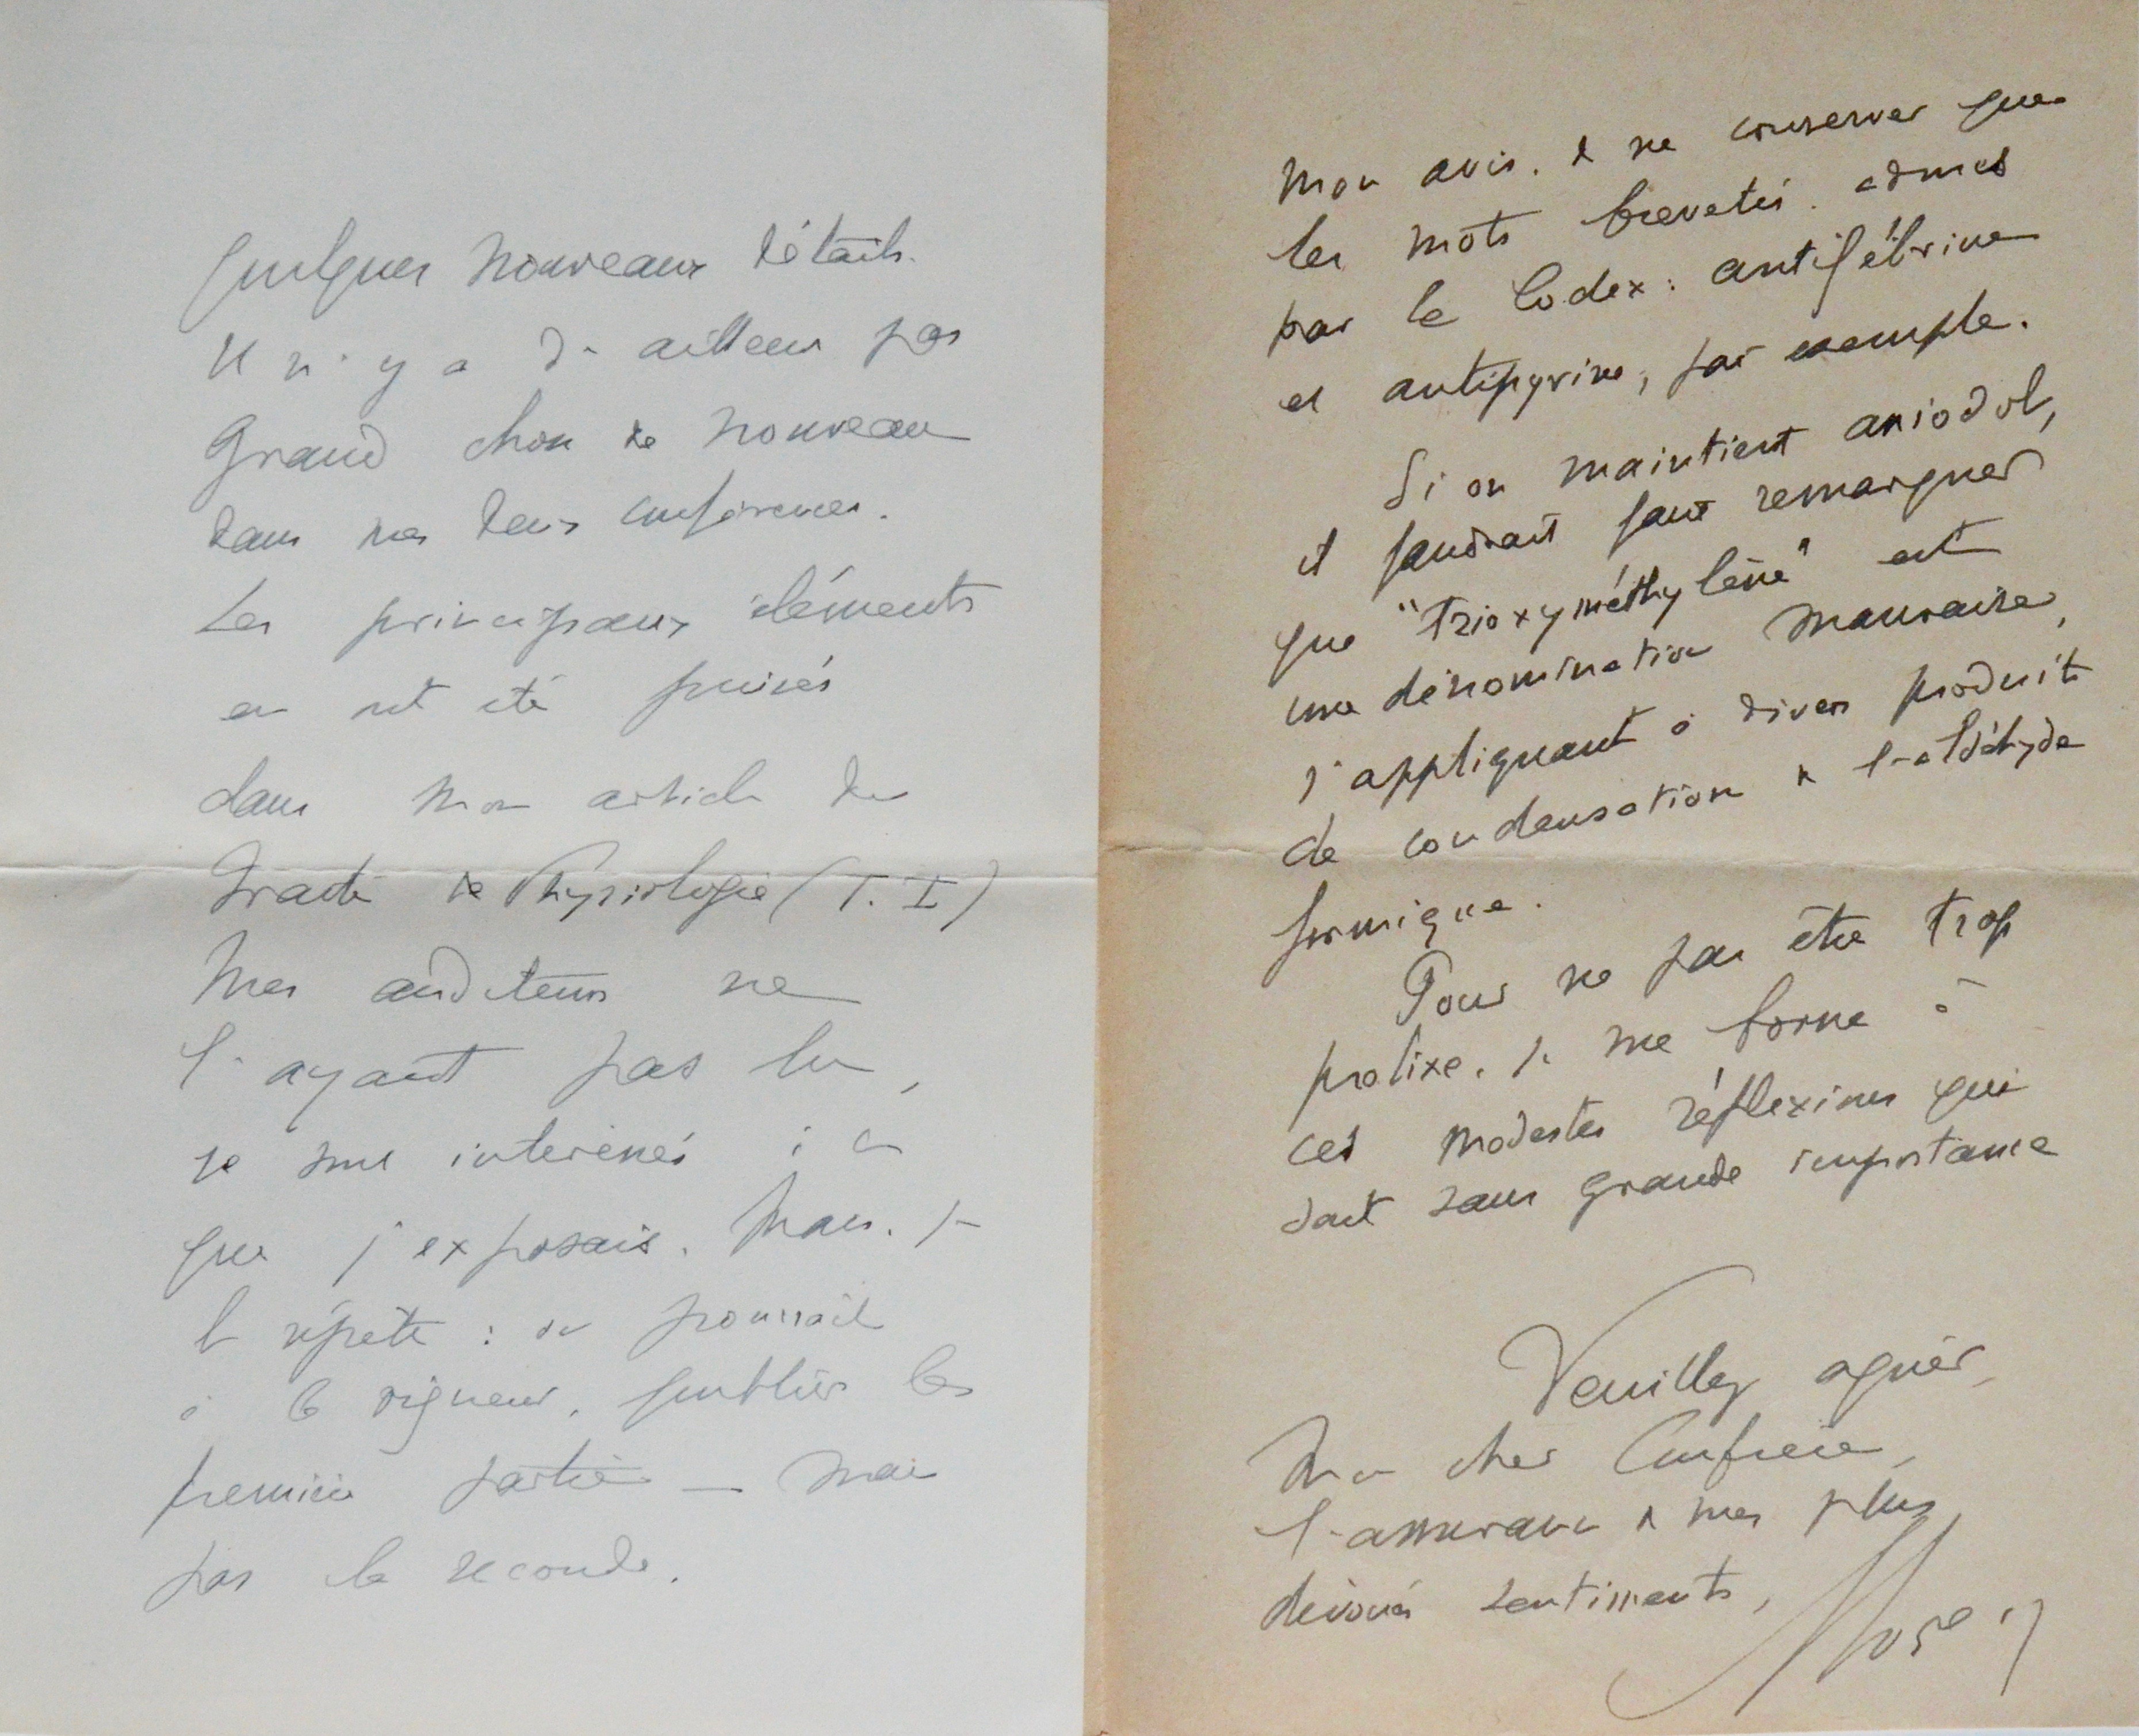 quelques nouveaux détails.
Il n'y a d'ailleurs pas
grand chose de nouveau
dans mes deux conférences.
Les principaux éléments
en ont été puisés
dans mon article du
Traité de Physiologie (T. I)
Mes auditeurs ne
l'ayant pas lu,
se sont intéressés à ce
que j'exposais. Mais, je
le répète : on pourrait
à la rigueur, publier la
première partie — mais
pas la seconde.
mon avis, & ne conserver que
les mots brevetés admis
par le Codex : antifébrine
et antipyrine, par exemple.
Si on maintient aniodol,
il faudrait faire remarquer
que "trioxyméthylène" est
une dénomination mauvaise,
s'appliquant à divers produits
de condensation de l'aldéhyde
formique.
Pour ne pas être trop
prolixe, je me borne à
ces modestes réflexions qui
sont sans grande importance
Veuillez agréer,
Mon cher Confrère,
l'assurance de mes plus
dévoués sentiments,